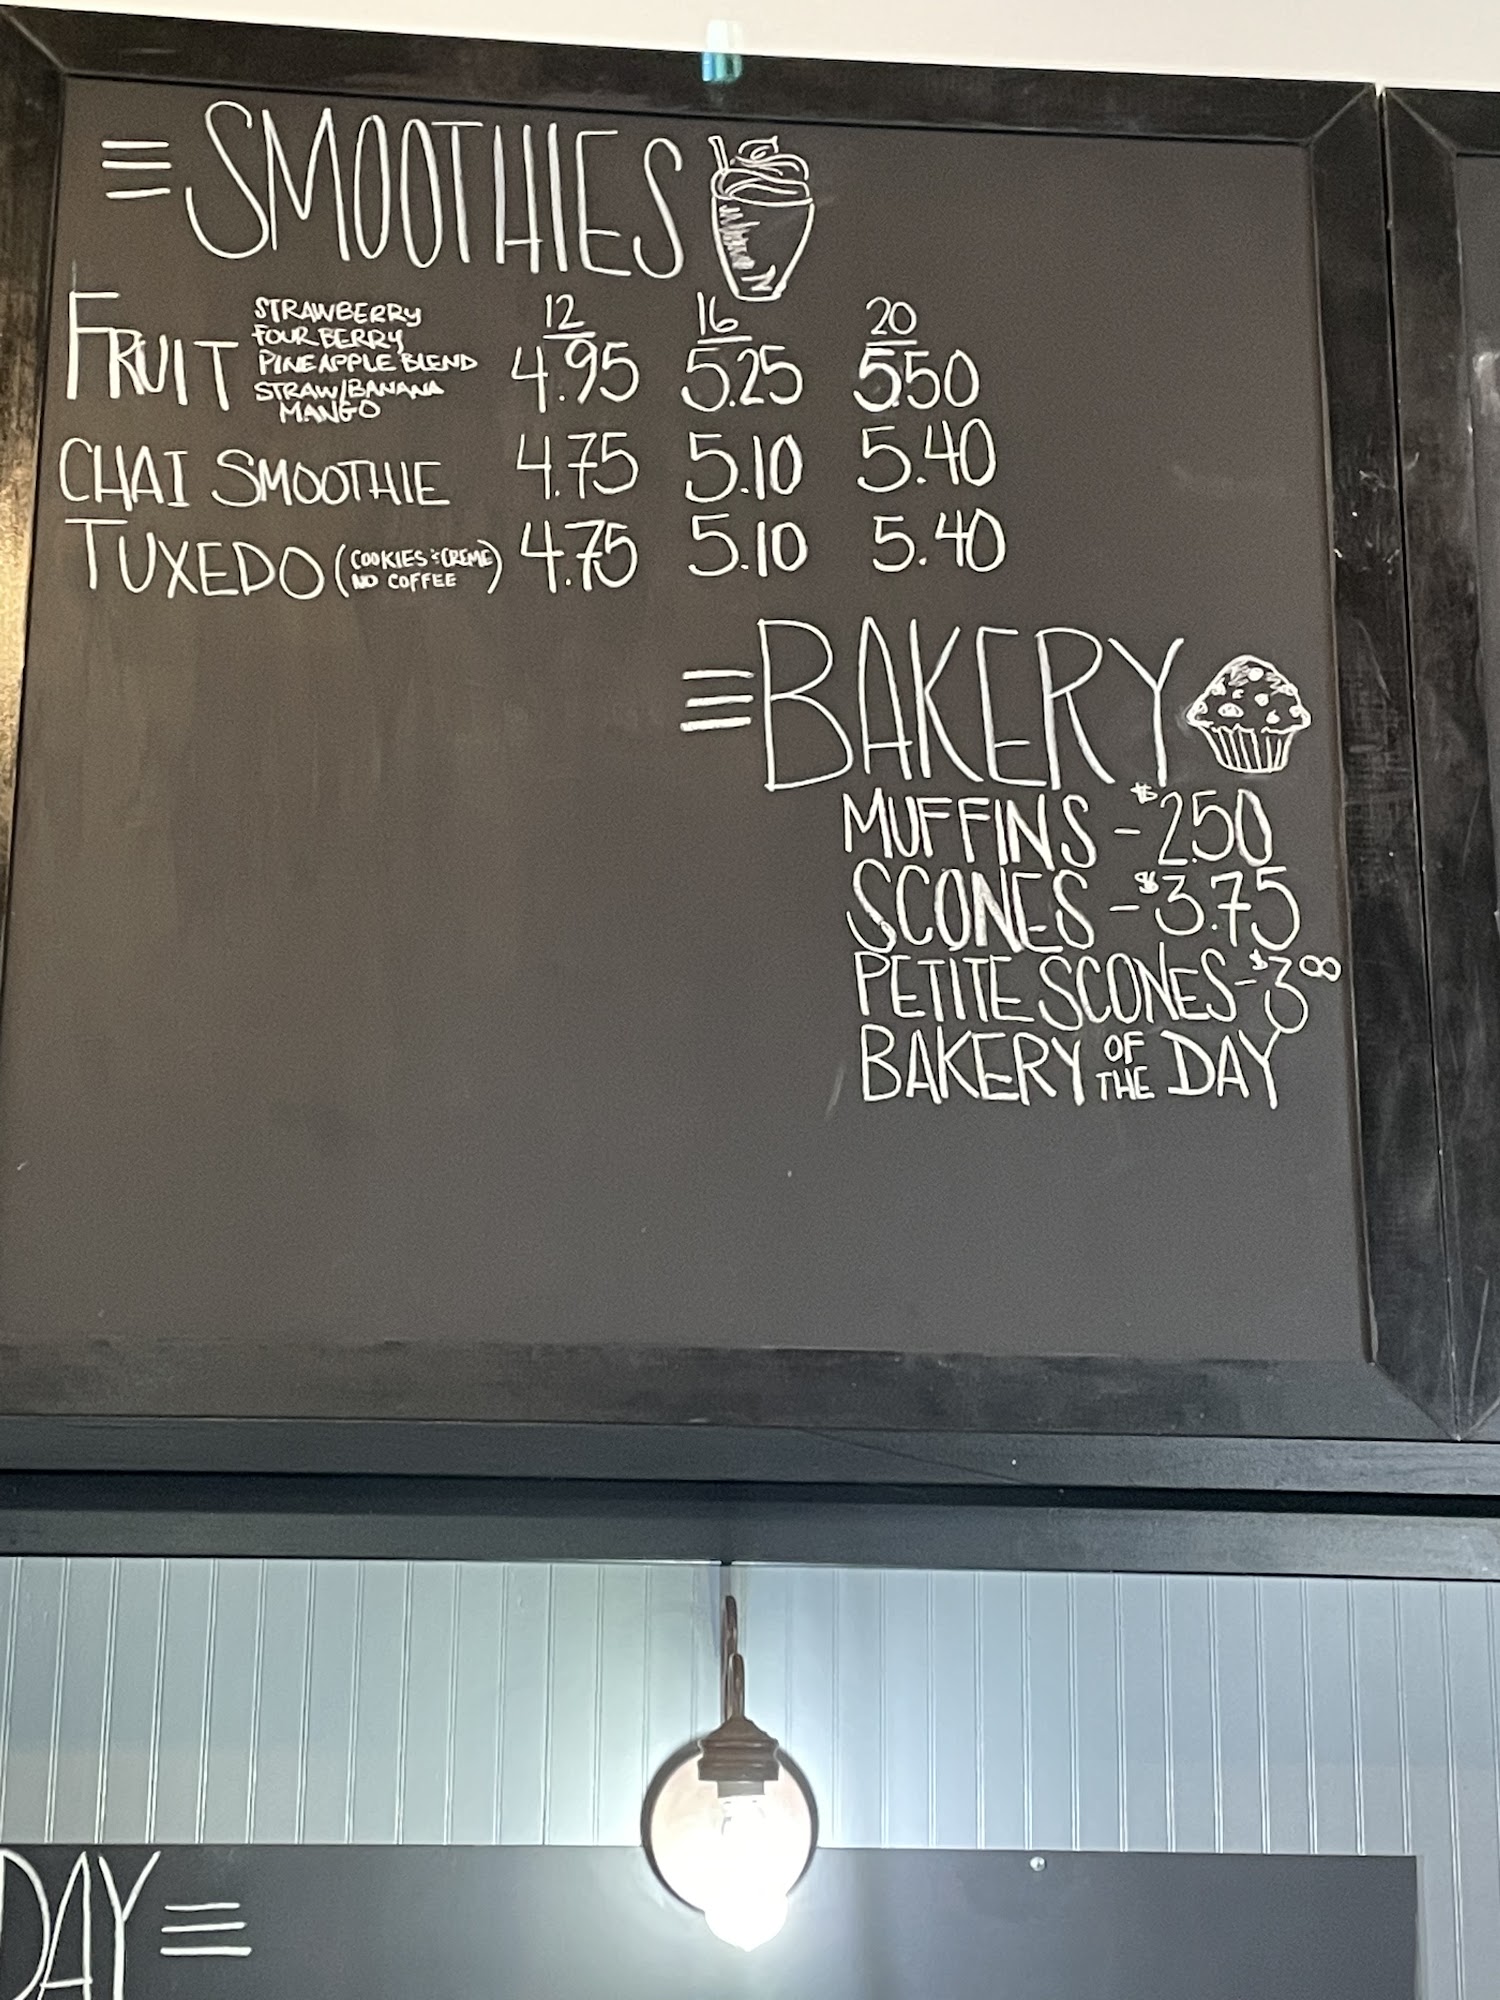 SMOOTHIES
12 16 20
FRUIT 4.95 5.25 5.50
STRAWBERRY
FOUR BERRY
PINEAPPLE BLEND
STRAW/BANANA
MANGO
CHAI SMOOTHIE 4.75 5.10 5.40
TUXEDO (COOKIES & CREME NO COFFEE) 4.75 5.10 5.40
BAKERY
MUFFINS - $2.50
SCONES - $3.75
PETITE SCONES - $3.00
BAKERY OF THE DAY
DAY